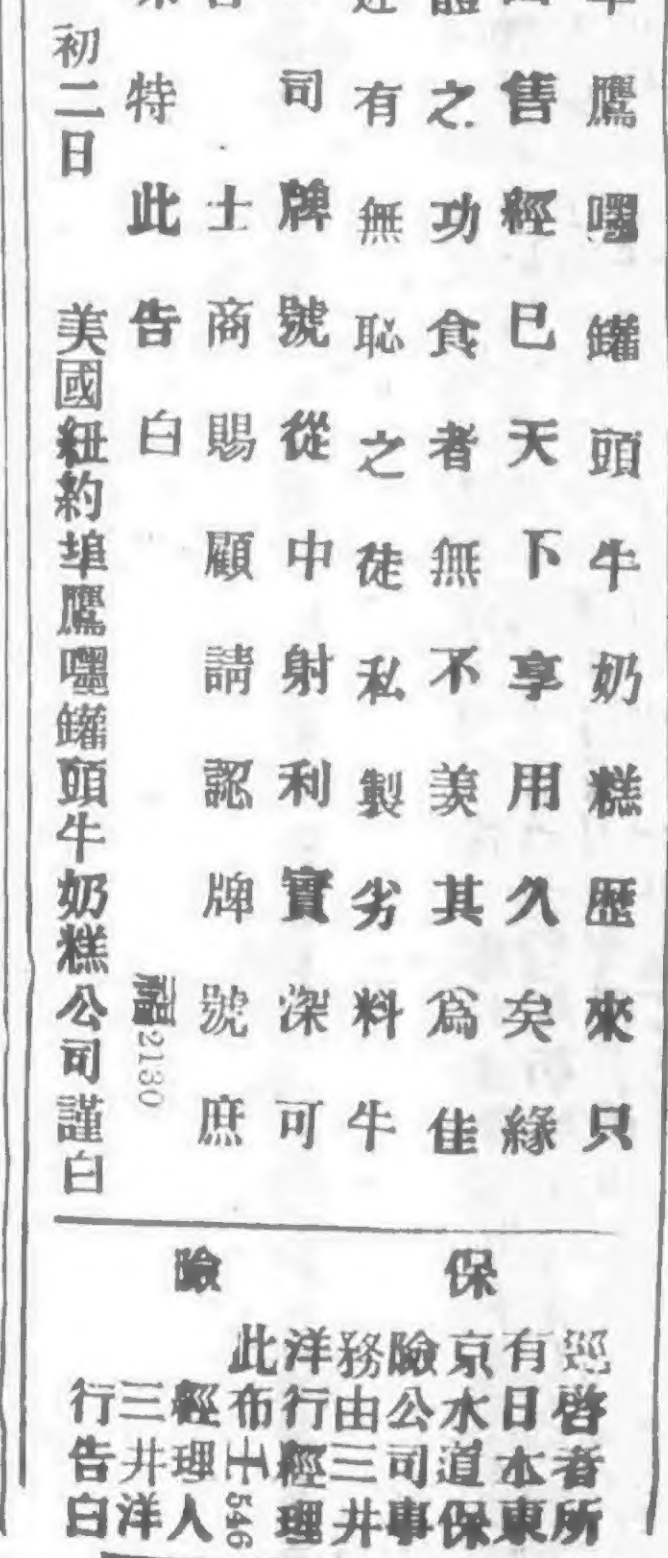 鷹嚜罐頭牛奶糕歷來只
售經已天下享用久矣緣
體之功食者無不羨其為佳
近有無恥之徒私製劣料牛
司牌號從中射利實深可
士商賜顧請認牌號庶
特此告白 福2130
初二日 美國紐約埠鷹嚜罐頭牛奶糕公司謹白
保險
啓者所
有日本東
京水道保
險公司事
務由三井
洋行經理
此布 士546
經理人
三井洋
行告白